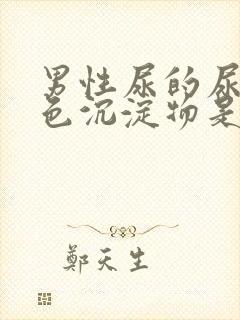 男性尿的尿
色沉淀物是
鄭天生